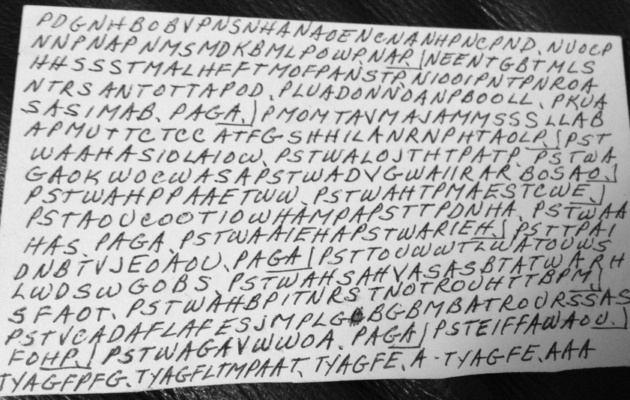 PDGNHBOBVPNSNHANAOENCNANHPNCPND, NUOCP
NNPNAPNMSMDKBMLPOWPNAP.) NEENTGBTMLS
HHSSSTMALHFFTMOFPANSTP, NIOOIPNTPNROA
NTRSANTOTTAPOD, PLUADONNOANPBOOLL, PKUA
SASIMAB, PAGA.) PMOMTAVMAJAMMSSSLLAB
APMUTTCTCCATFGSHHILANRNPHTAOLP.) PST
WAAHASIOLAIOW, PSTWALOJTHTPATP, PSTWA
GAOKWOCWASAPSTWADVGWAIIRAR, BOSAO.)
PSTWAHPPAAETWW, PSTWAHTPMAESTCWE.)
PSTAOUCOOTIOWHAMPAPSTTPDNHA, PSTWAA
HAS, PAGA, PSTWAAIEHAPSTWARIEH.) PSTTPAI
DNBTVJEOAOU, PAGA) PSTTOUWWTLWATOUWS
LWDSWGOBS, PSTWAHSAHVASASBTATWARH
SFAOT, PSTWAHBPITNRSTNOTROUHTTBPM)
PSTVCADAFLAFESJMPLGBGBMBATROURSSAS
FOHP.) PSTWAGAVWWOA, PAGA) PSTEIFFAWAOU.)
TYAGFPFG, TYAGFLTMPAAT, TYAGFE, A-TYAGFE, AAA